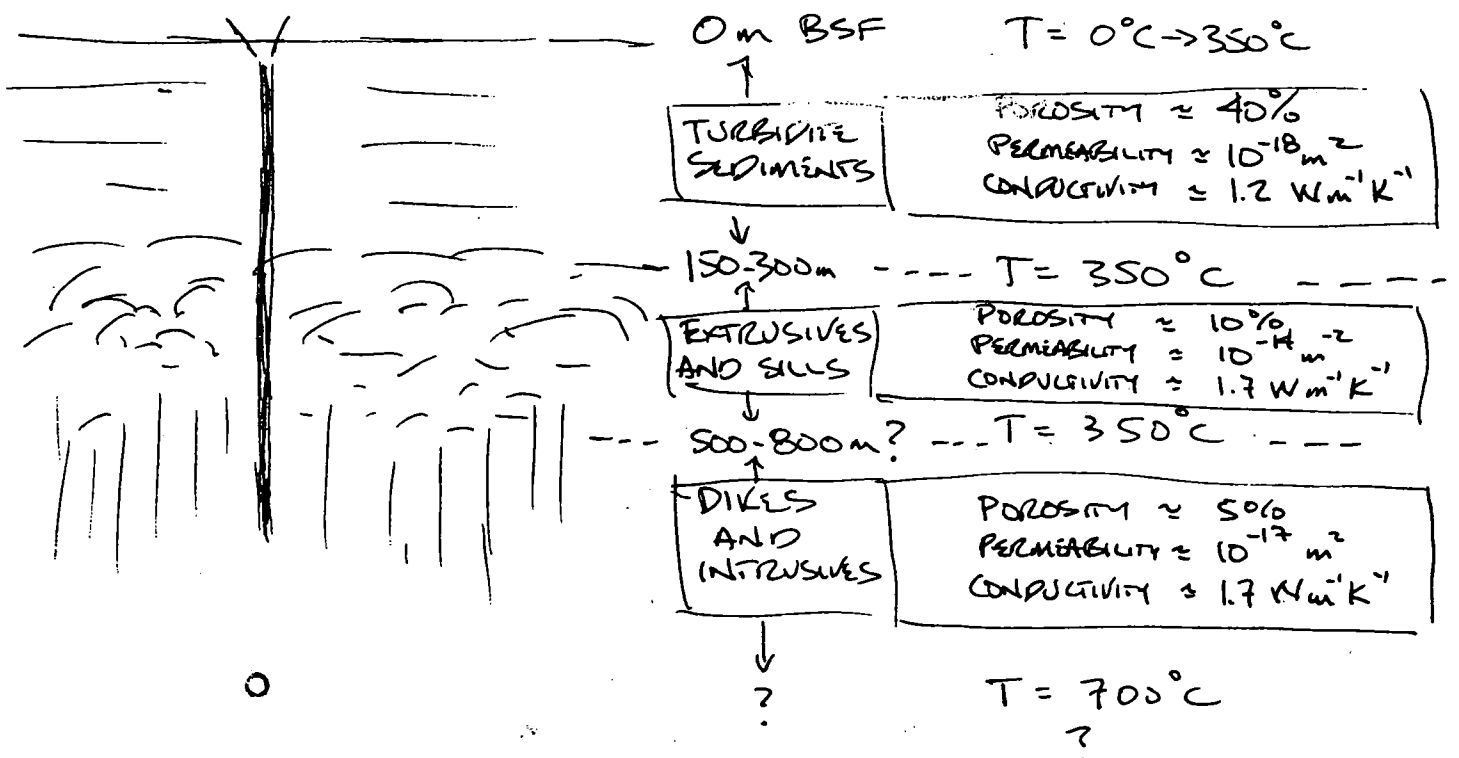 0 m BSF T = 0°C → 350°C
TURBIDITE
SEDIMENTS
POROSITY ≃ 40%
PERMEABILITY ≃ 10⁻¹⁸ m²
CONDUCTIVITY ≃ 1.2 Wm⁻¹K⁻¹
150-300m ---- T = 350°C ----
EXTRUSIVES
AND SILLS
POROSITY ≃ 10%
PERMEABILITY ≃ 10⁻¹⁴ m⁻²
CONDUCTIVITY ≃ 1.7 Wm⁻¹K⁻¹
--- 500-800m? --- T = 350°C ---
DIKES
AND
INTRUSIVES
POROSITY ≃ 5%
PERMEABILITY ≃ 10⁻¹⁷ m²
CONDUCTIVITY ≃ 1.7 Wm⁻¹K⁻¹
? T = 700°C
?